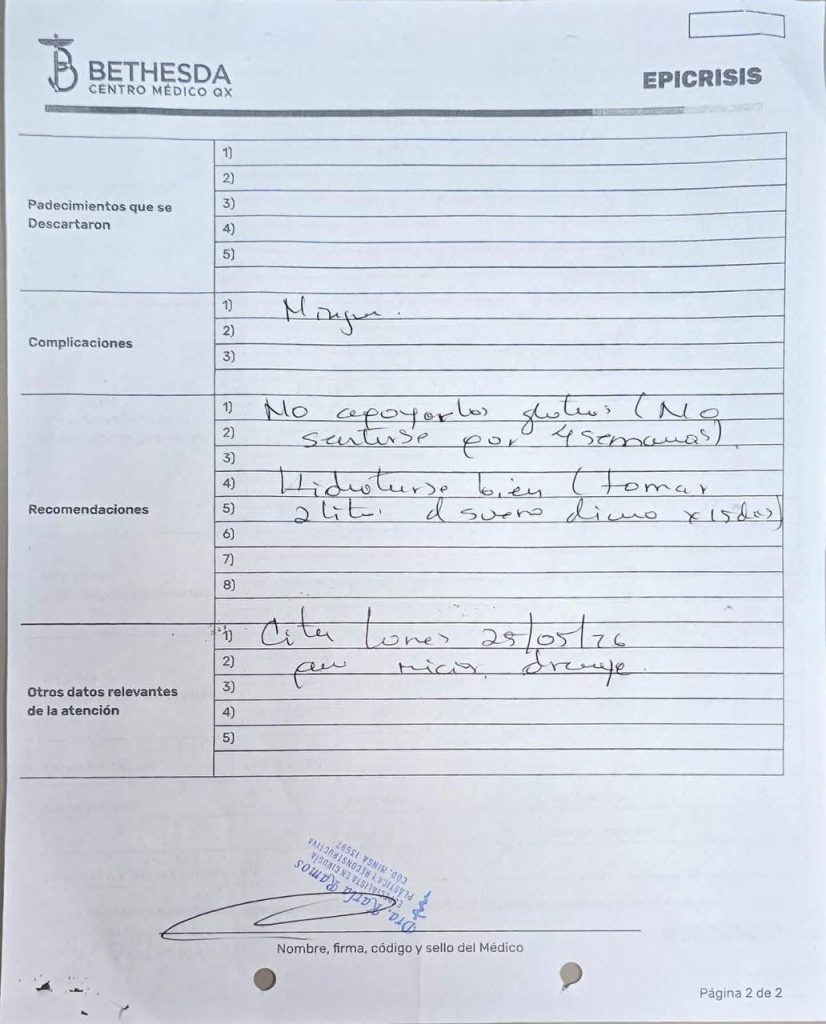 BETHESDA
CENTRO MÉDICO QX
EPICRISIS
Padecimientos que se
Descartaron
1)
2)
3)
4)
5)
Complicaciones
1) Ningun.
2)
3)
Recomendaciones
1) No apoyar los gluteos (No
2) sentarse por 4 semanas).
3)
4) Hidratarse bien (tomar
5) 2 lit. d suero diario x 15 dias)
6)
7)
8)
Otros datos relevantes
de la atención
1) Cita lunes 25/05/26
2) para iniciar drenaje.
3)
4)
5)
Dra. Karla Ramos
ESPECIALISTA EN CIRUGÍA
PLÁSTICA Y RECONSTRUCTIVA
COD. MINSA 13597
Nombre, firma, código y sello del Médico
Página 2 de 2